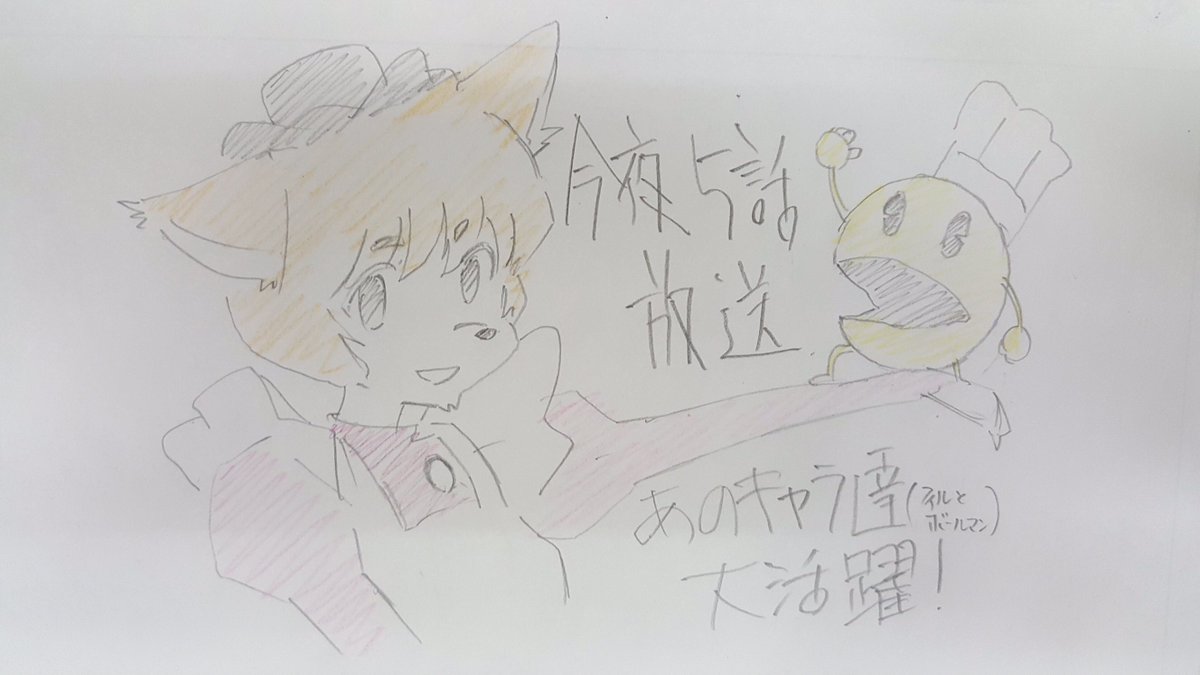 今夜5話
放送
あのキャラ達(ネルと
ボールマン)
大活躍!